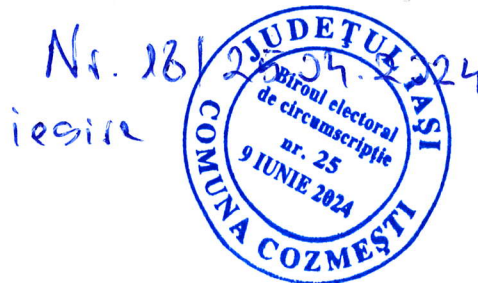 Nr. 18/25.04.2024
ieșire
JUDEȚUL IAȘI
Biroul electoral
de circumscripție
nr. 25
9 IUNIE 2024
COMUNA COZMEȘTI